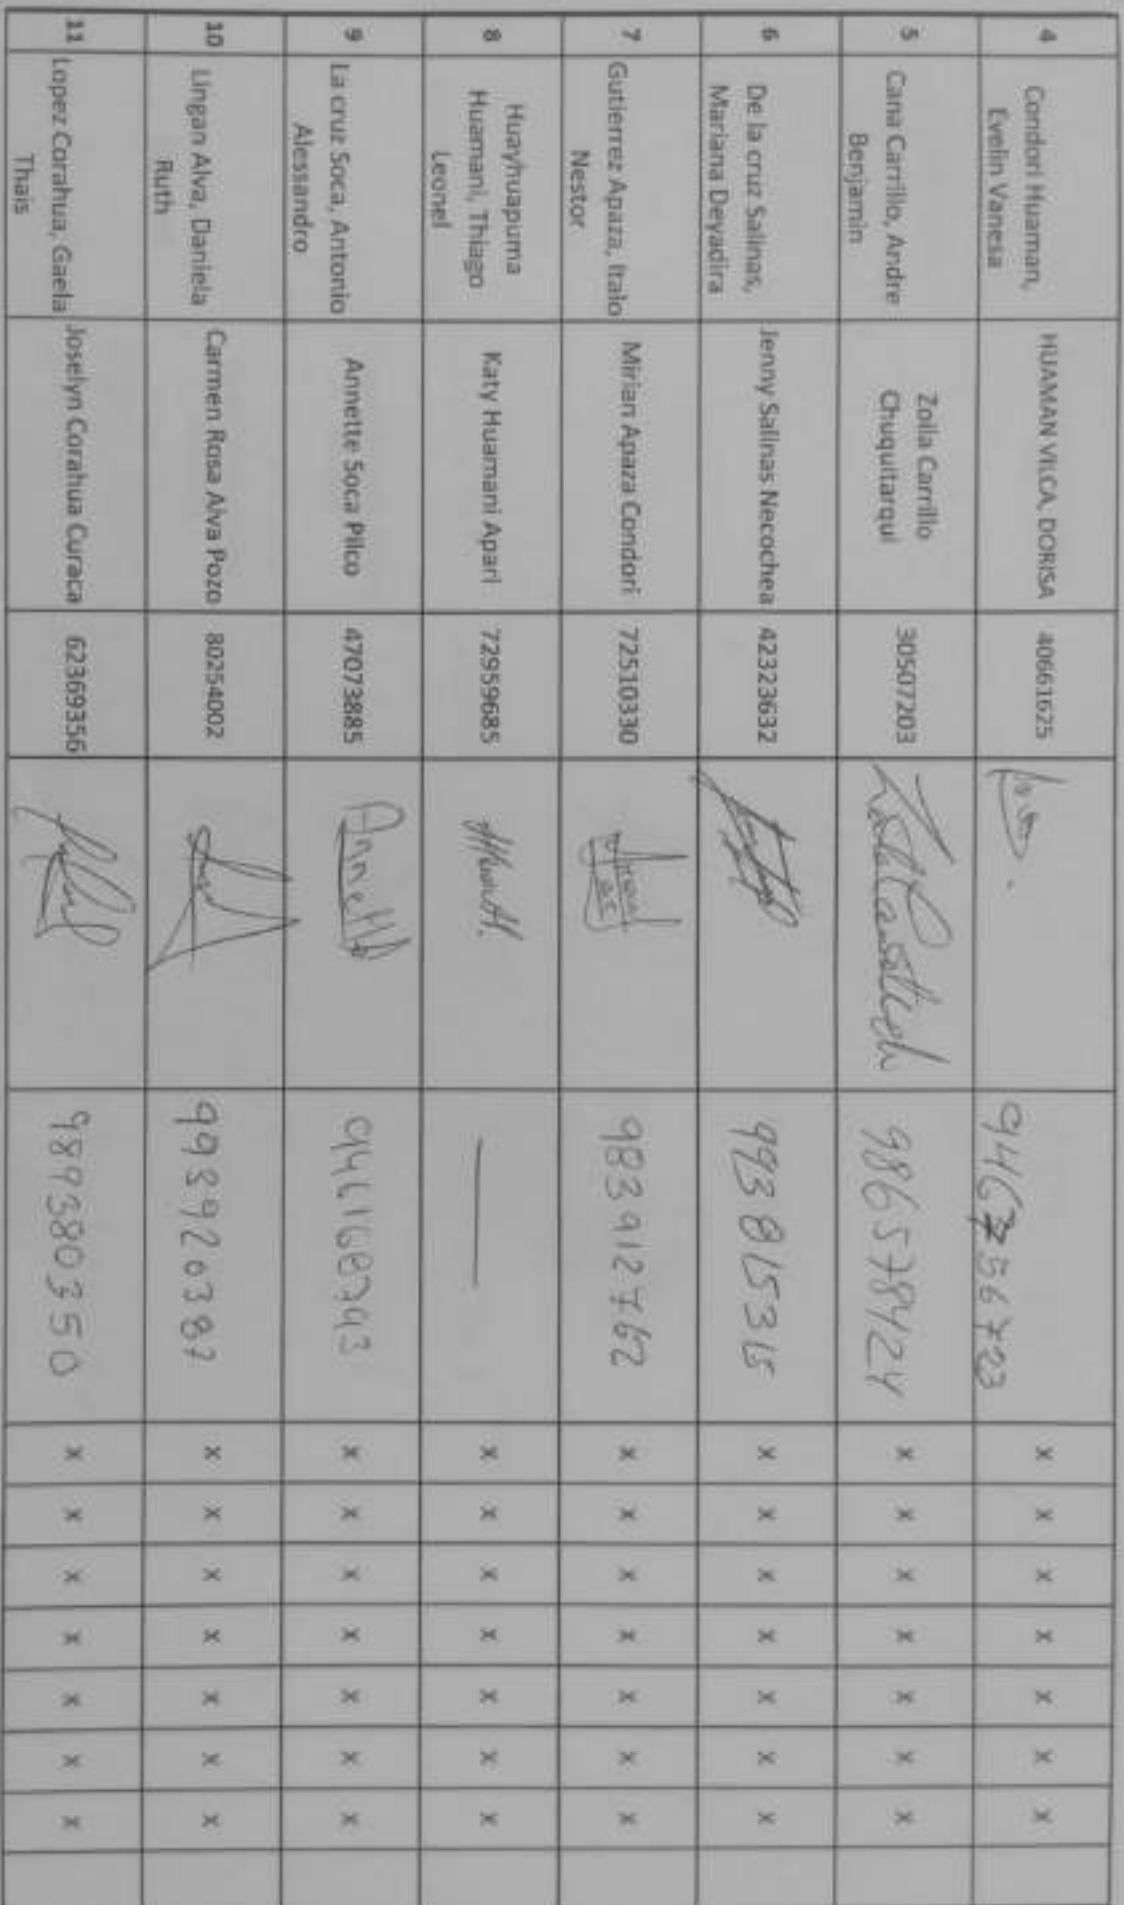 4
Condori Huaman,
Evelin Vanesa
HUAMAN VILCA, DORISA
40661625
x x x x x x x
5
Cana Carrillo, Andre
Benjamin
Zoila Carrillo
Chuquitarqui
30507203
986578424
x x x x x x x
6
De la cruz Salinas,
Mariana Deyadira
Jenny Salinas Necochea
42323632
x x x x x x x
7
Gutierrez Apaza, Italo
Nestor
Mirian Apaza Condori
72510330
983912762
x x x x x x x
8
Huayhuapuma
Huamani, Thiago
Leonel
Katy Huamani Apari
72959685
—
x x x x x x x
9
La cruz Soca, Antonio
Alessandro
Annette Soca Pilco
47073885
Annette
x x x x x x x
10
Lingan Alva, Daniela
Ruth
Carmen Rosa Alva Pozo
80254002
x x x x x x x
11
Lopez Corahua, Gaela
Thais
Joselyn Corahua Curaca
62369356
989380350
x x x x x x x